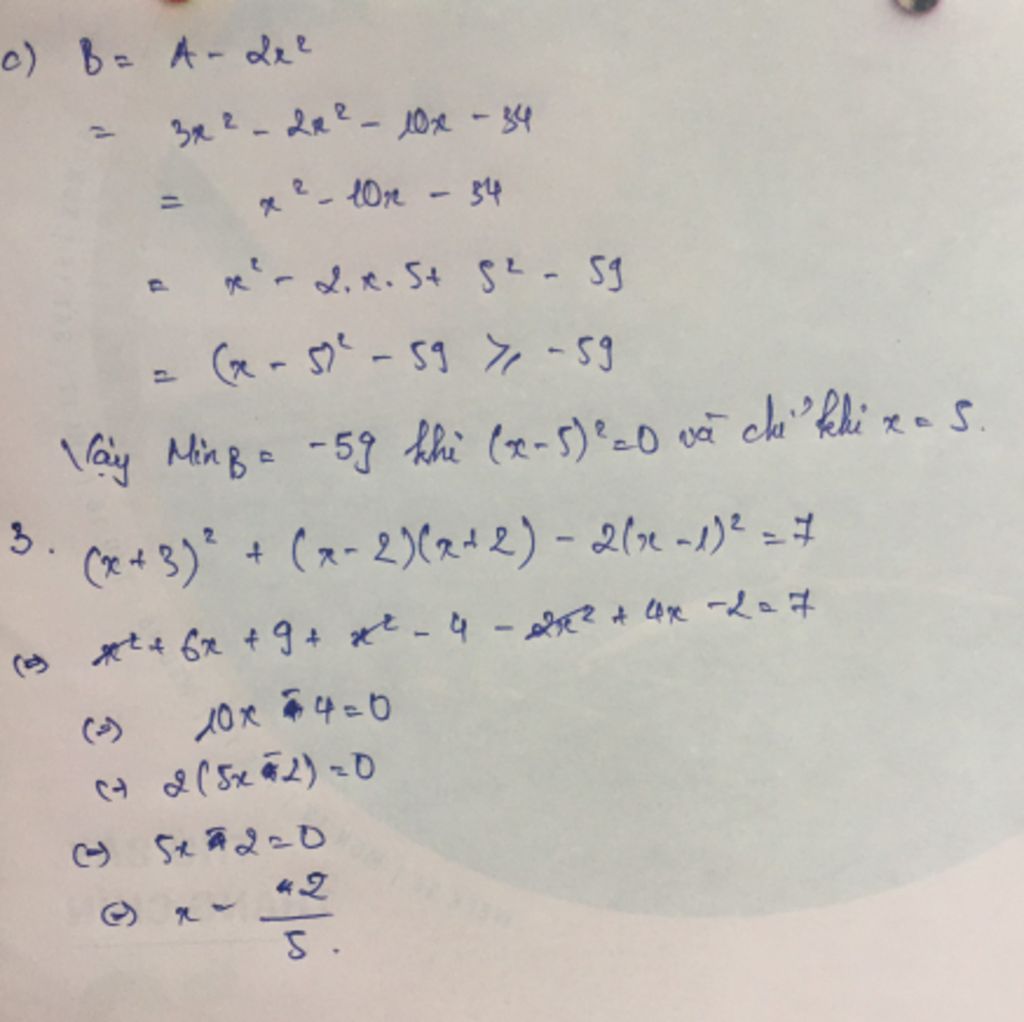 c) B = A - 2x²
= 3x² - 2x² - 10x - 34
= x² - 10x - 34
= x² - 2.x.5 + 5² - 59
= (x - 5)² - 59 ⩾ -59
Vậy Min B = -59 khi (x-5)²=0 và chỉ khi x = 5.
3. (x+3)² + (x-2)(x+2) - 2(x-1)² = 7
(=) x² + 6x + 9 + x² - 4 - 2x² + 4x - 2 = 7
(=) 10x - 4 = 0
(=) 2(5x - 2) = 0
(=) 5x - 2 = 0
(=) x = 2/5.